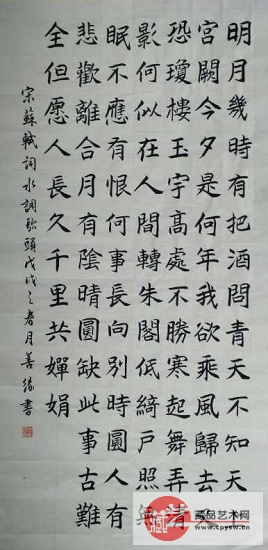 明月幾時有把酒問青天不知天上
宮闕今夕是何年我欲乘風歸去又
恐瓊樓玉宇高處不勝寒起舞弄清
影何似在人間轉朱閣低綺戶照無
眠不應有恨何事長向別時圓人有
悲歡離合月有陰晴圓缺此事古難
全但愿人長久千里共嬋娟
宋蘇軾詞水調歌頭戊戌之春月善緣書
藏品艺术网
www.cpysw.cn